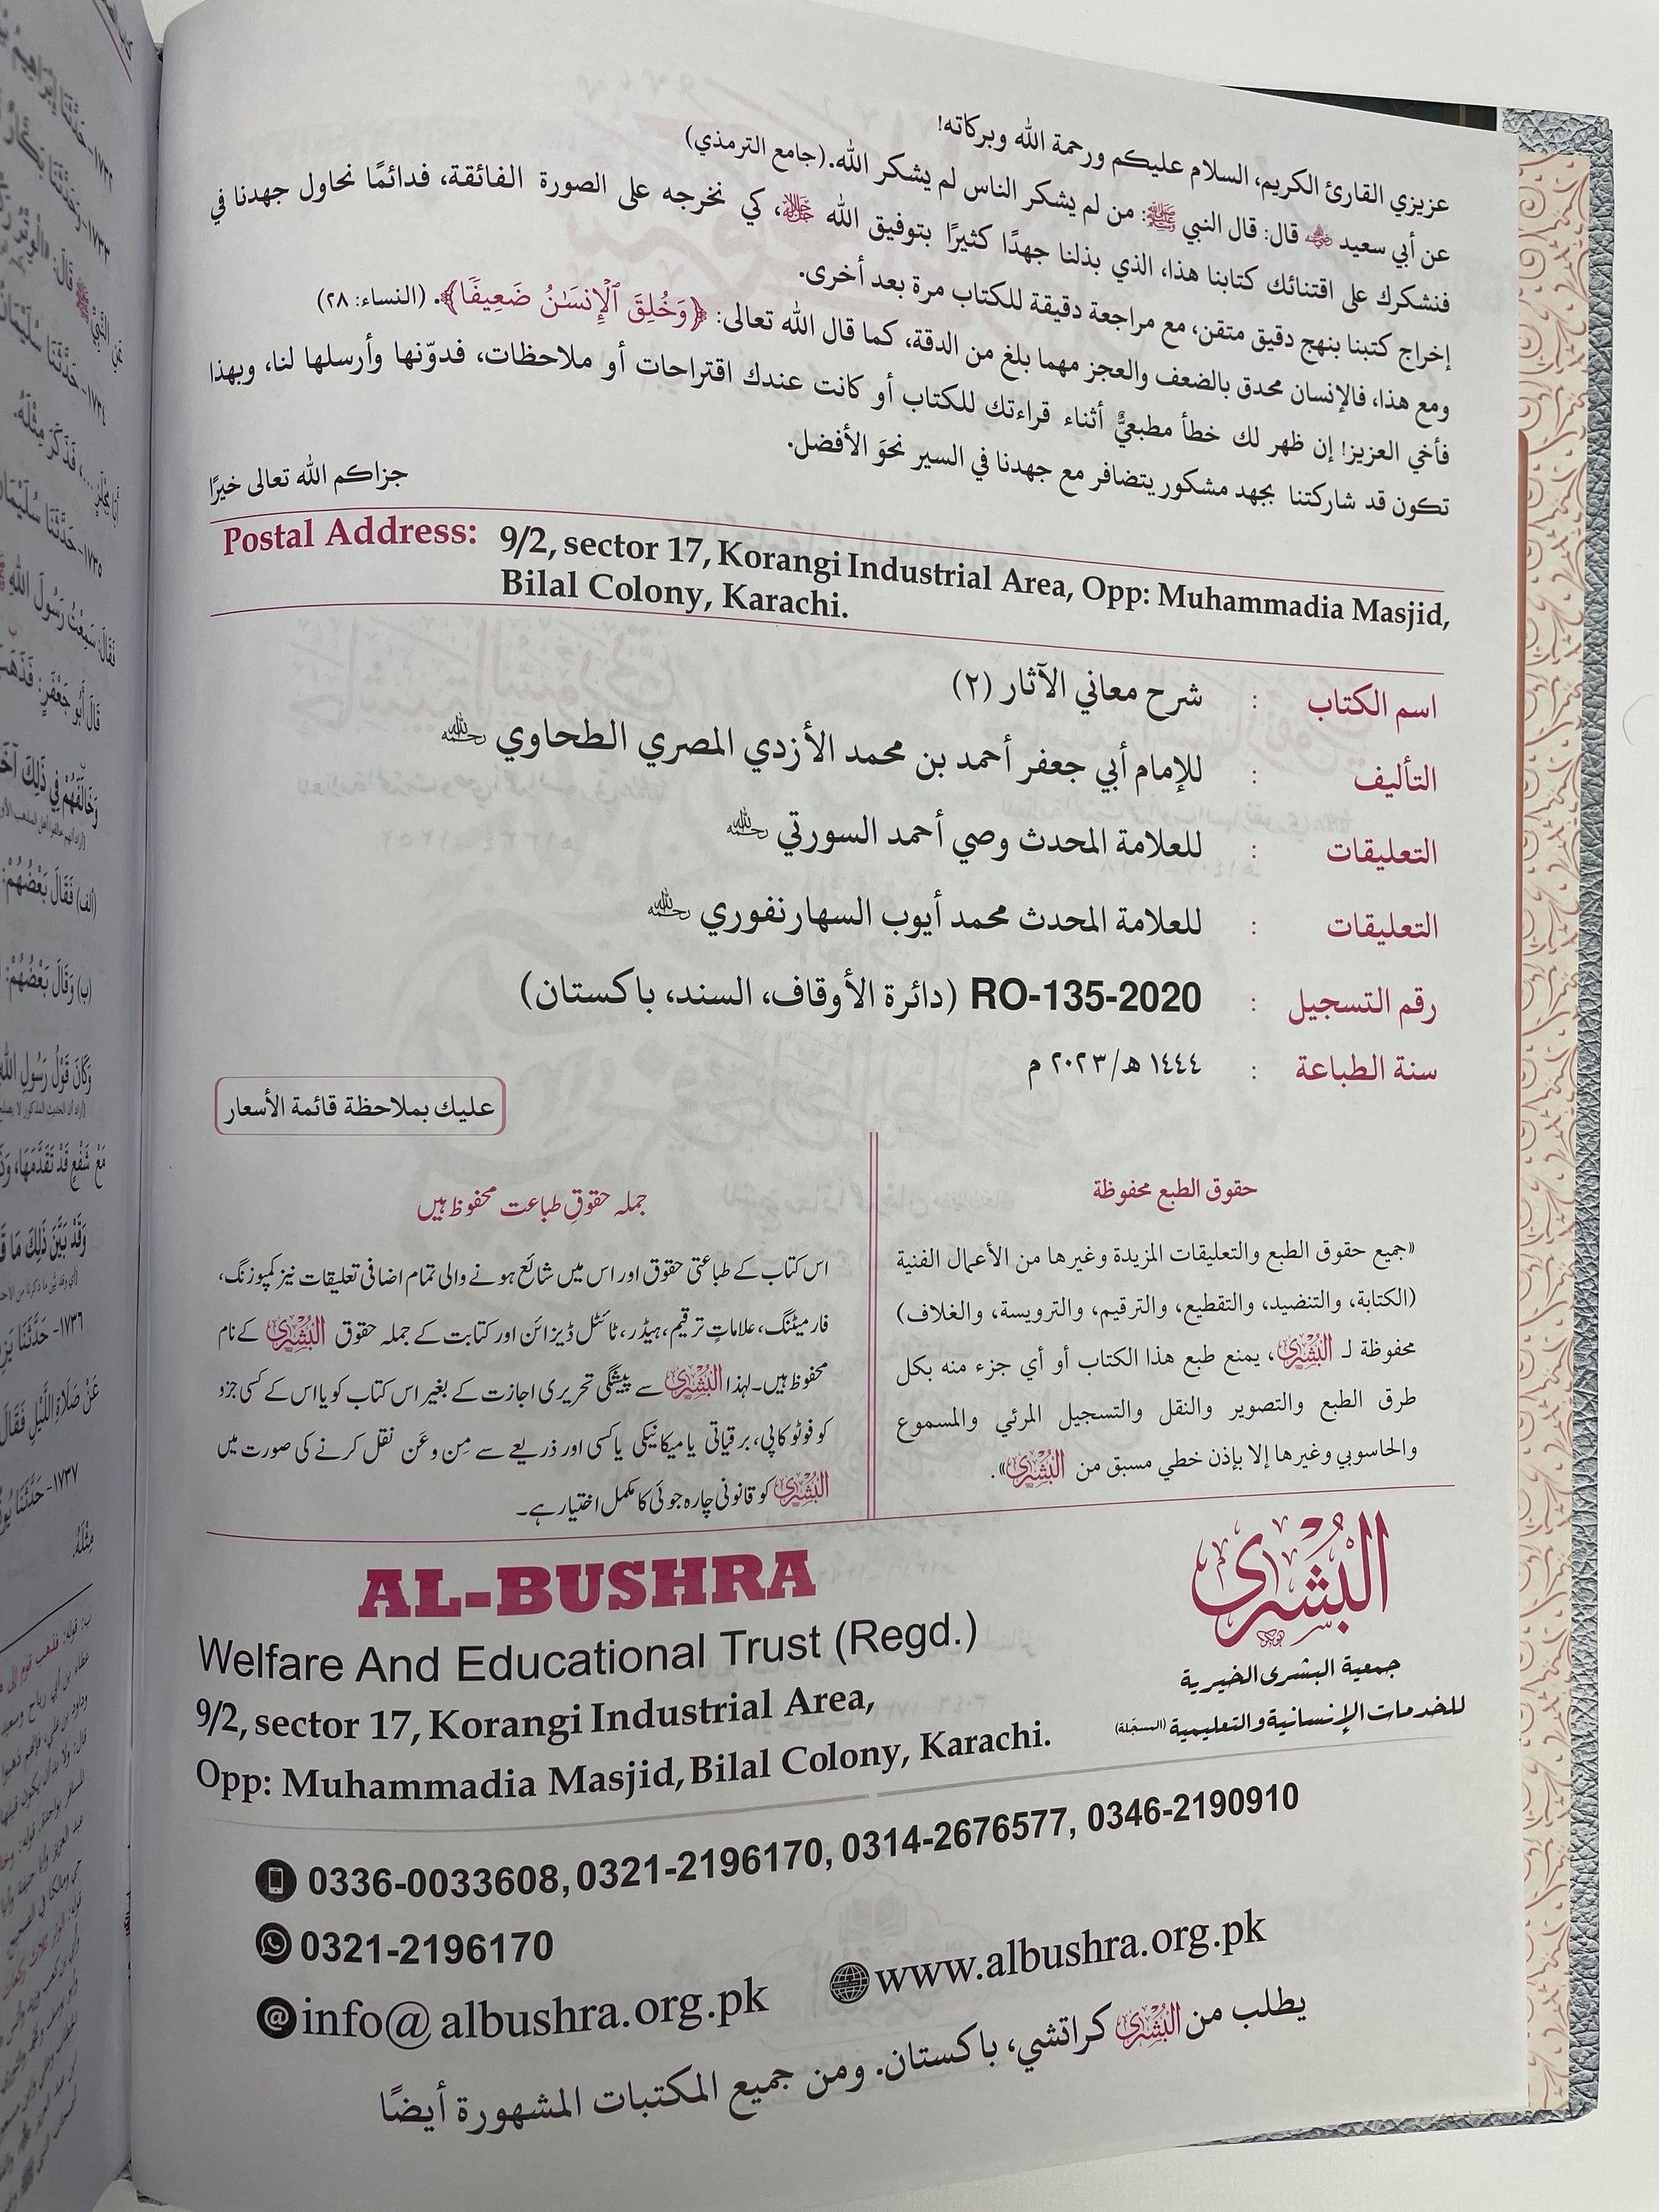 عزيزي القارئ الكريم، السلام عليكم ورحمة الله وبركاته!
عن أبي سعيد ﷺ قال: قال النبي ﷺ: من لم يشكر الناس لم يشكر الله. (جامع الترمذي)
فنشكرك على اقتنائك كتابنا هذا، الذي بذلنا جهدًا كثيرًا بتوفيق الله ﷻ، كي نخرجه على الصورة الفائقة، فدائمًا نحاول جهدنا في
إخراج كتبنا بنهج دقيق متقن، مع مراجعة دقيقة للكتاب مرة بعد أخرى.
ومع هذا، فالإنسان محدق بالضعف والعجز مهما بلغ من الدقة، كما قال الله تعالى: ﴿وَخُلِقَ ٱلْإِنسَٰنُ ضَعِيفًا﴾. (النساء: ٢٨)
فأخي العزيز! إن ظهر لك خطأ مطبعيٌّ أثناء قراءتك للكتاب أو كانت عندك اقتراحات أو ملاحظات، فدوّنها وأرسلها لنا، وبهذا
تكون قد شاركتنا بجهد مشكور يتضافر مع جهدنا في السير نحوَ الأفضل.
جزاكم الله تعالى خيرًا
Postal Address: 9/2, sector 17, Korangi Industrial Area, Opp: Muhammadia Masjid,
Bilal Colony, Karachi.
اسم الكتاب : شرح معاني الآثار (٢)
التأليف : للإمام أبي جعفر أحمد بن محمد الأزدي المصري الطحاوي رحمه الله
التعليقات : للعلامة المحدث وصي أحمد السورتي رحمه الله
التعليقات : للعلامة المحدث محمد أيوب السهارنفوري رحمه الله
رقم التسجيل : RO-135-2020 (دائرة الأوقاف، السند، باكستان)
سنة الطباعة : ١٤٤٤ هـ/٢٠٢٣ م
عليك بملاحظة قائمة الأسعار
حقوق الطبع محفوظة
«جميع حقوق الطبع والتعليقات المزيدة وغيرها من الأعمال الفنية
(الكتابة، والتنضيد، والتقطيع، والترقيم، والترويسة، والغلاف)
محفوظة لـ البُشْرٰى، يمنع طبع هذا الكتاب أو أي جزء منه بكل
طرق الطبع والتصوير والنقل والتسجيل المرئي والمسموع
والحاسوبي وغيرها إلا بإذن خطي مسبق من البُشْرٰى».
جملہ حقوقِ طباعت محفوظ ہیں
اس کتاب کے طباعتی حقوق اور اس میں شائع ہونے والی تمام اضافی تعلیقات نیز کمپوزنگ،
فارمیٹنگ، علاماتِ ترقیم، ہیڈر، ٹائٹل ڈیزائن اور کتابت کے جملہ حقوق البُشْرٰى کے نام
محفوظ ہیں۔ لہذا البُشْرٰى سے پیشگی تحریری اجازت کے بغیر اس کتاب کو یا اس کے کسی جزو
کو فوٹو کاپی، برقیاتی یا میکانیکی یا کسی اور ذریعے سے مِن و عَن نقل کرنے کی صورت میں
البُشْرٰى کو قانونی چارہ جوئی کا مکمل اختیار ہے۔
البُشْرٰى
جمعية البشرى الخيرية
للخدمات الإنسانية والتعليمية (المسجّلة)
AL-BUSHRA
Welfare And Educational Trust (Regd.)
9/2, sector 17, Korangi Industrial Area,
Opp: Muhammadia Masjid, Bilal Colony, Karachi.
0336-0033608, 0321-2196170, 0314-2676577, 0346-2190910
0321-2196170
info@albushra.org.pk www.albushra.org.pk
يطلب من البُشْرٰى كراتشي، باكستان. ومن جميع المكتبات المشهورة أيضًا